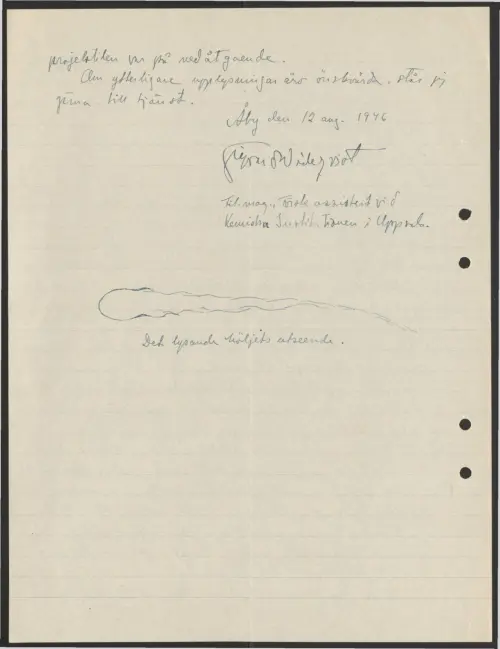 projektilen var på nedåtgående.
Om ytterligare upplysningar äro önskvärda, står jag
gärna till tjänst.
Åby den 12 aug. 1946
Fil. mag., assistent vid
Kemiska Institutionen i Uppsala.
Det lysande höljets utseende.